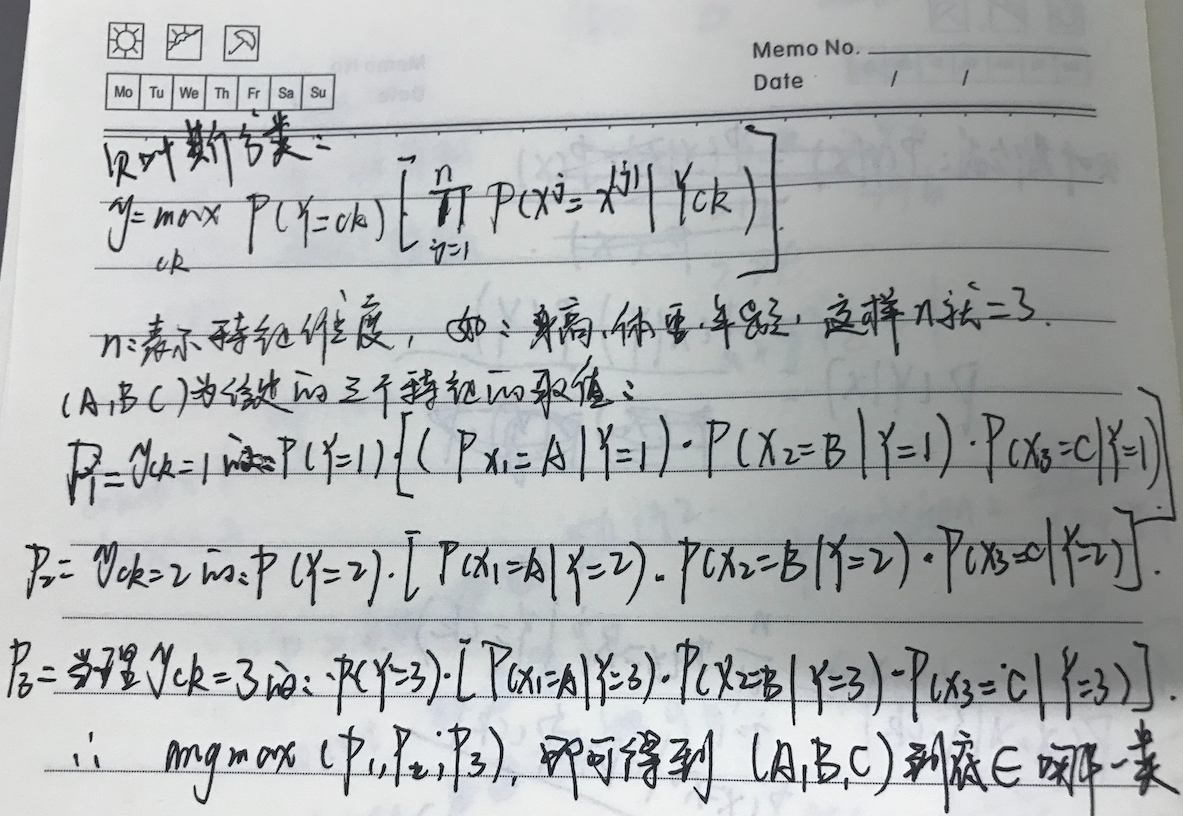 Memo No.
Date / /
Mo Tu We Th Fr Sa Su
分类：
y = max P(Y=ck) [ n ∏ j=1 P(X^j = x^(j) | Yck) ]
ck
n:表示特征维度，如：身高、体重、年龄，这样n就=3.
(A,B C)为给定的三个特征的取值：
P1 = yck=1 P(Y=1)·[( Px1=A|Y=1)·P(X2=B|Y=1)·P(X3=C|Y=1)]
P2= yck=2 P(Y=2)·[P(X1=A|Y=2)·P(X2=B|Y=2)·P(X3=C|Y=2)].
P3= yck=3 P(Y=3)·[P(X1=A|Y=3)·P(X2=B|Y=3)·P(X3=C|Y=3)].
∴ argmax (P1,P2,P3),即可得到 (A,B,C)到底∈哪一类